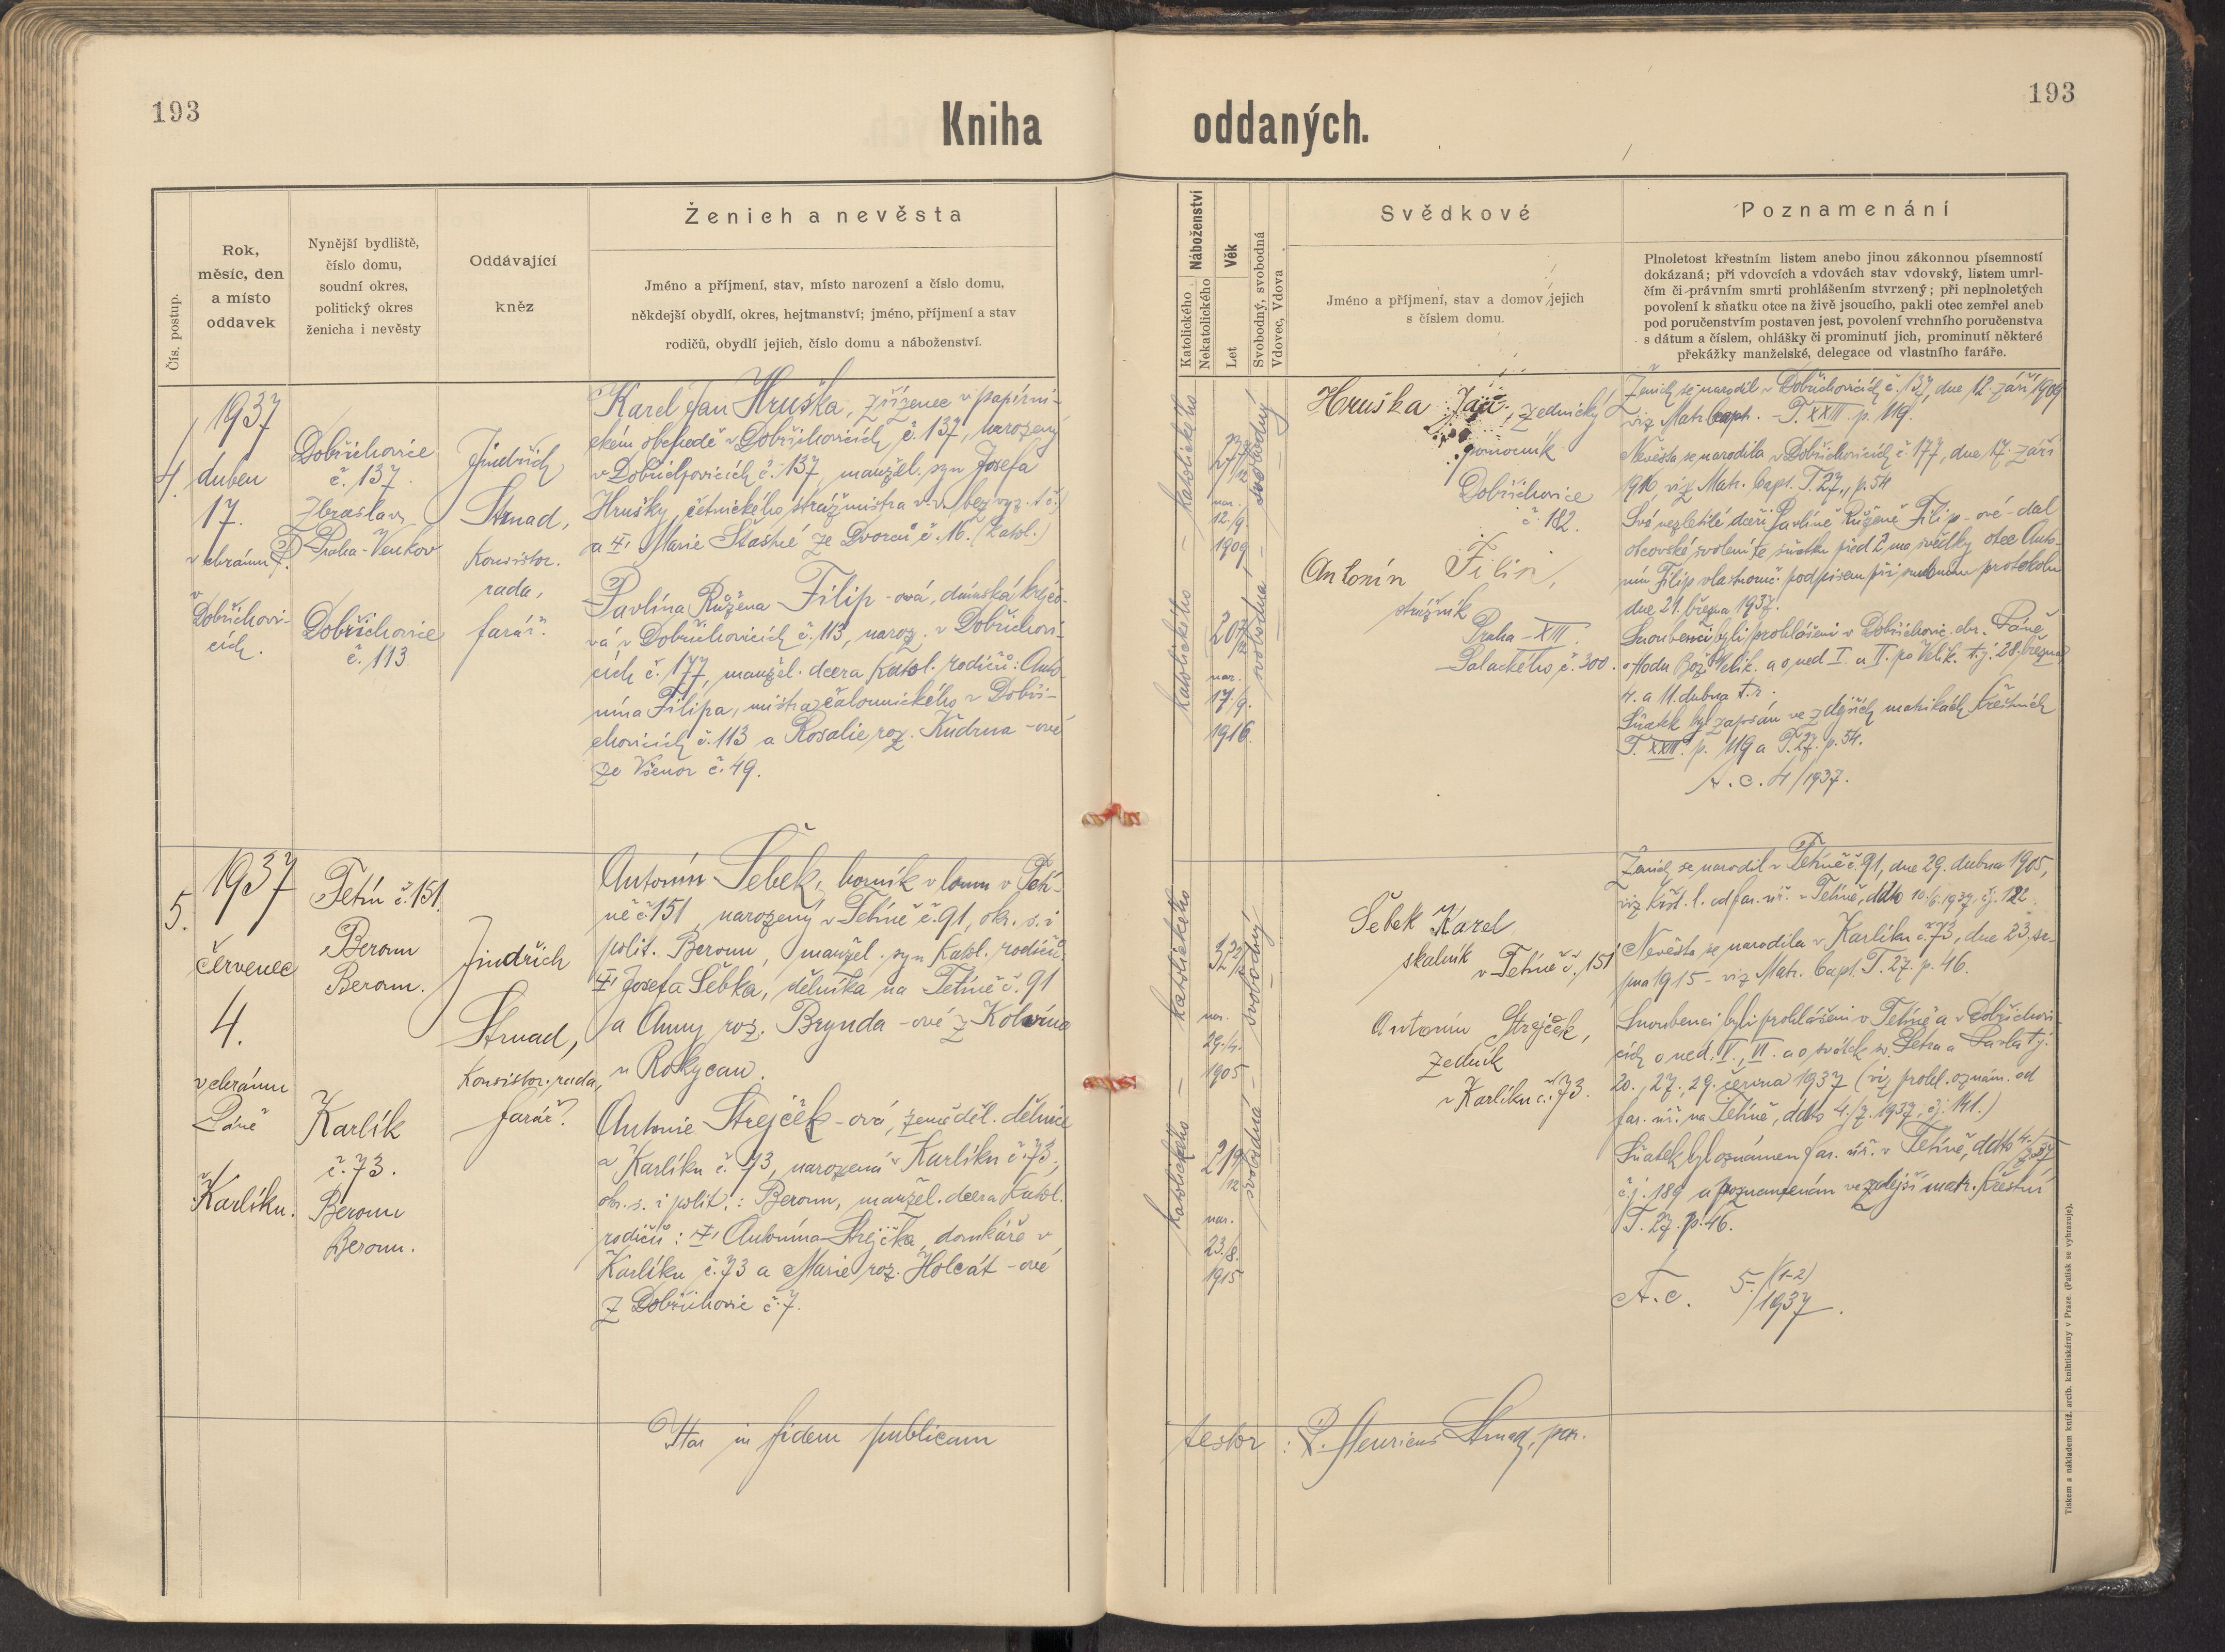 193
Kniha
oddaných.
193
Čís. postup.
Rok,
měsíc, den
a místo
oddavek
Nynější bydliště,
číslo domu,
soudní okres,
politický okres
ženicha i nevěsty
Oddávající
kněz
Ženich a nevěsta
Jméno a příjmení, stav, místo narození a číslo domu,
někdejší obydlí, okres, hejtmanství; jméno, příjmení a stav
rodičů, obydlí jejich, číslo domu a náboženství.
Náboženství
Katolického
Nekatolického
Věk
Let
Svobodný, svobodná
Vdovec, Vdova
Svědkové
Jméno a příjmení, stav a domov jejich
s číslem domu.
Poznamenání
Plnoletost křestním listem anebo jinou zákonnou písemností
dokázaná; při vdovcích a vdovách stav vdovský, listem umrl-
čím či právním smrti prohlášením stvrzený; při neplnoletých
povolení k sňatku otce na živě jsoucího, pakli otec zemřel aneb
pod poručenstvím postaven jest, povolení vrchního poručenstva
s dátum a číslem, ohlášky či prominutí jich, prominutí některé
překážky manželské, delegace od vlastního faráře.
4.
1937
duben
17.
v chrámu P.
v
Dobřichovi-
cích.
Dobřichovice
č. 137
Zbraslav
Praha-Venkov
Dobřichovice
č. 113
Jindřich
Strnad,
Konsistor.
rada,
farář.
Karel Jan Hruška, zřízenec v papírni-
ckém obchodě v Dobřichovicích č. 137, narozený
v Dobřichovicích č. 137, manžel. syn Josefa
Hrušky, četnického strážmistra v.v. (bez vyz. t.č.)
a Marie Šťastné ze Dvorců č. 16. (katol.)
Pavlína Růžena Filip-ová, dámská krejčo-
vá v Dobřichovicích č. 113, naroz. v Dobřichovi-
cích č. 177, manžel. dcera katol. rodičů: Anto-
nína Filipa, mistra čalounického v Dobři-
chovicích č. 113 a Rosalie roz. Kudrna-ové
ze Všenor č. 49.
katolického - katolického -
27
nar.
12./9.
1909
20
nar.
17/9.
1916.
svobodná - svobodný
Hruška Jan, zednický
pomocník
Dobřichovice
č. 182.
Antonín Filip,
strážník
Praha-XIII.
Palackého č. 300.
Ženich se narodil v Dobřichovicích č. 137, dne 12. září 1909
viz Matr. bapt. - T. XXIII. p. 119.
Nevěsta se narodila v Dobřichovicích č. 177, dne 17. září
1916, viz Matr. bapt. T. 27., p. 54
Své nezletilé dceři Pavlíně Růženě Filip-ové - dal
otcovské svolení ke sňatku před 2ma svědky otec Anto-
nín Filip vlastnoruč. podpisem při protokolu
dne 21. března 1937.
Snoubenci byli prohlášeni v Dobřichovic. chr. Páně
o Hodu Bož. Velik. a o ned I. a II. po Velik. t.j. 28. března,
4. a 11. dubna t.r.
Sňatek byl zapsán ve zdejších matrikách křestních
T. XXIII. p. 119 a T. 27. p. 54.
A. c. 4/1937.
5.
1937
červenec
4.
v chrámu
Páně
v
Karlíku.
Tetín č. 151.
Beroun
Beroun.
Karlík
č. 73.
Beroun
Beroun.
Jindřich
Strnad,
Konsistor. rada,
farář.
Antonín Šebek, horník v lomu v Tetí-
ně č. 151, narozený v Tetíně č. 91, okr. s. i
polit. Beroun, manžel. syn katol. rodičů:
Josefa Šebka, dělníka na Tetíně č. 91
a Anny roz. Brynda-ové z Kolvína
u Rokycan.
Antonie Strejček-ová, zeměděl. dělnice
v Karlíku č. 73, narozená v Karlíku č. 73,
okr. s. i polit.: Beroun, manžel. dcera katol.
rodičů: Antonína Strejčka, domkáře v
Karlíku č. 73 a Marie roz. Holcát-ové
z Dobřichovic č. 7.
katolického - katolického
32
nar.
29./4.
1905
21
nar.
23./8.
1915
svobodná - svobodný
Šebek Karel
skalník
v Tetíně č. 151
Antonín Strejček,
zedník
v Karlíku č. 73.
Ženich se narodil v Tetíně č. 91, dne 29. dubna 1905,
viz křst. l. od far. úř. v Tetíně, ddto 10./6. 1937, čj. 122.
Nevěsta se narodila v Karlíku č. 73, dne 23. sr-
pna 1915 - viz Matr. bapt. T. 27. p. 46.
Snoubenci byli prohlášeni v Tetíně a v Dobřichovi-
cích o ned. V., VI. a o svátek sv. Petra a Pavla t.j.
20., 27., 29. června 1937 (viz prohl. oznám. od
far. úř. na Tetíně, ddto 4./7. 1937, čj. 141.)
Sňatek byl oznámen far. úř. v Tetíně, ddto 4./7. 37
č.j. 189 a poznamenán ve zdejší matr. křestní
T. 27. p. 46.
A. c. 5./(1-2)
/1937.
Ita in fidem publicam
testor : P. Henricus Strnad, par.
Tiskem a nákladem kníž. arcib. knihtiskárny v Praze. (Patisk se vyhrazuje).